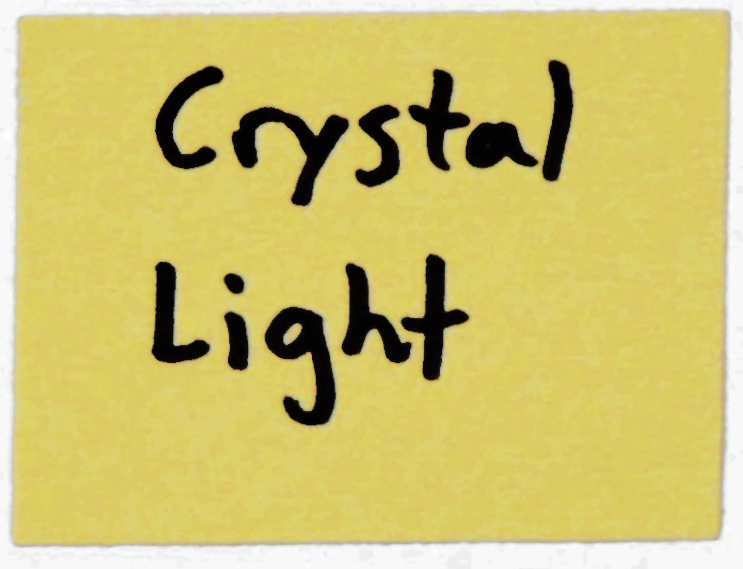 Crystal
Light